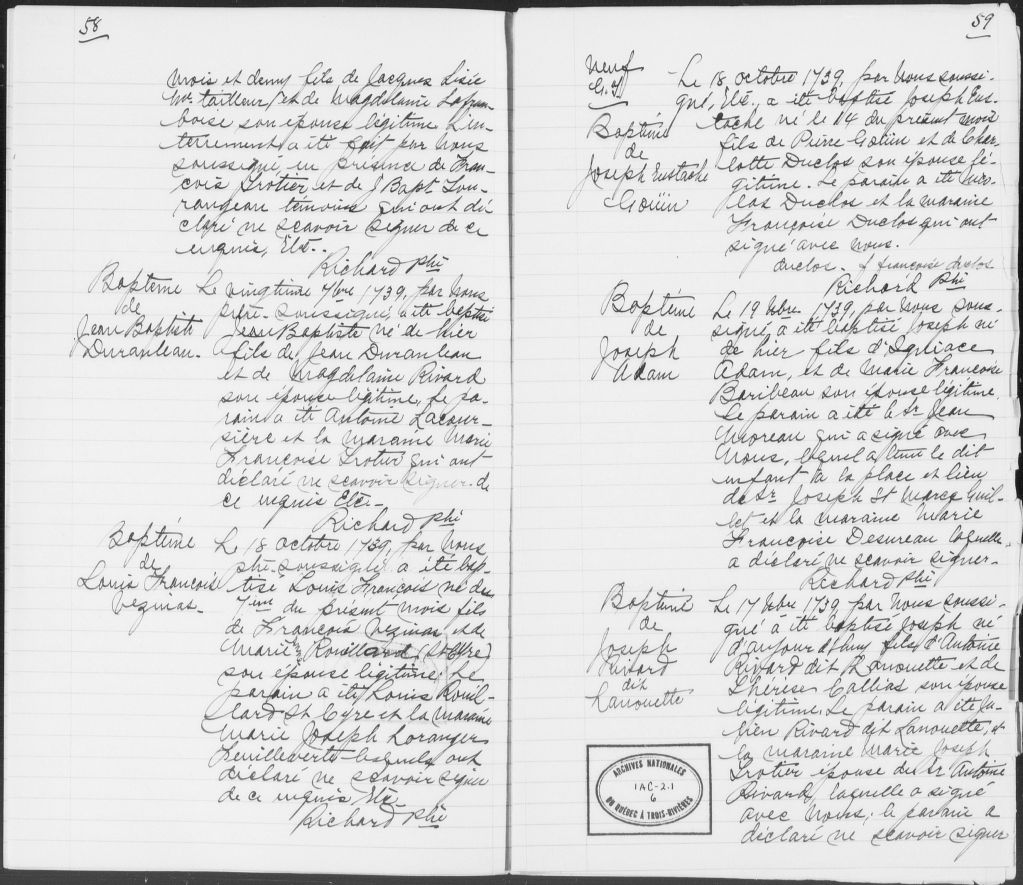 58
mois et demy fils de Jacques Lisié
Mr. tailleur, et de Magdelaine Lafram-
boise son épouse légitime. L'en-
terrement a été fait par nous
soussigné en présence de Fran-
çois Trotier et de J Bapt Lou-
rangeau témoins qui ont dé-
claré ne scavoir signer de ce
enquis, Etc..
Richard Phi
Baptême
de
Jean Baptiste
Duranleau.
Le vingtième 7bre 1739, par nous
ptre. soussigné, a été baptisé
Jean Baptiste né de hier
fils de Jean Duranleau
et de Magdelaine Rivard
son épouse légitime. Le pa-
rain a été Antoine Lacour-
sière et la maraine Marie
Françoise Trotier qui ont
déclaré ne scavoir signer de
ce enquis Etc-
Richard Phi
Baptême
de
Louis François
Vezinas-
Le 18 octobre 1739, par nous
ptre. soussigné a été bap-
tisé Louis François né du
7ème du présent mois fils
de François Vezinas et de
Marie Rouillard (St Cyre)
son épouse légitime. Le
parain a été Louis Rouil-
lard St Cyre et la maraine
Marie Joseph Loranger
Feuilleverte lesquels ont
déclaré ne scavoir signer
de ce enquis Etc-
Richard Phi
59
neuf
G.H
Baptême
de
Joseph Eustache
Goüin
Le 18 octobre 1739, par nous soussi-
gné, Etc., a été baptisé Joseph Eus-
tache né le 14 du présent mois
fils de Pierre Goüin et de Char-
lotte Duclos son épouse lé-
gitime. Le parain a été Nico-
las Duclos et la maraine
Françoise Duclos qui ont
signé avec nous.
duclos. f françoise duclos
Richard Phi
Baptême
de
Joseph
Adam
Le 19 Nbre 1739, par nous sous-
signé, a été baptisé Joseph né
de hier fils d'Igniace
Adam, et de Marie Françoise
Baribeau son épouse légitime.
Le parain a été le Sr. Jean
Moreau qui a signé avec
nous, lequel a tenu le dit
enfant à la place et lieu
de Sr. Joseph St Marcq Guil-
let et la maraine Marie
Françoise Desureau laquelle
a déclaré ne scavoir signer-
Richard Phi,
Baptême
de
Joseph
Rivard
dit
Lanouette
Le 17 Nbre 1739 par nous soussi-
gné a été baptisé Joseph né
d'aujourd'huy fils d'Antoine
Rivard dit Lanouette et de
Thérèse Callias son épouse
légitime. Le parain a été Ju-
lien Rivard dit Lanouette, et
la maraine Marie Joseph
Trotier épouse du Sr. Antoine
Rivard, laquelle a signé
avec nous; le parain a
déclaré ne scavoir signer
ARCHIVES NATIONALES
1AC-2.1
6
DU QUÉBEC À TROIS-RIVIÈRES